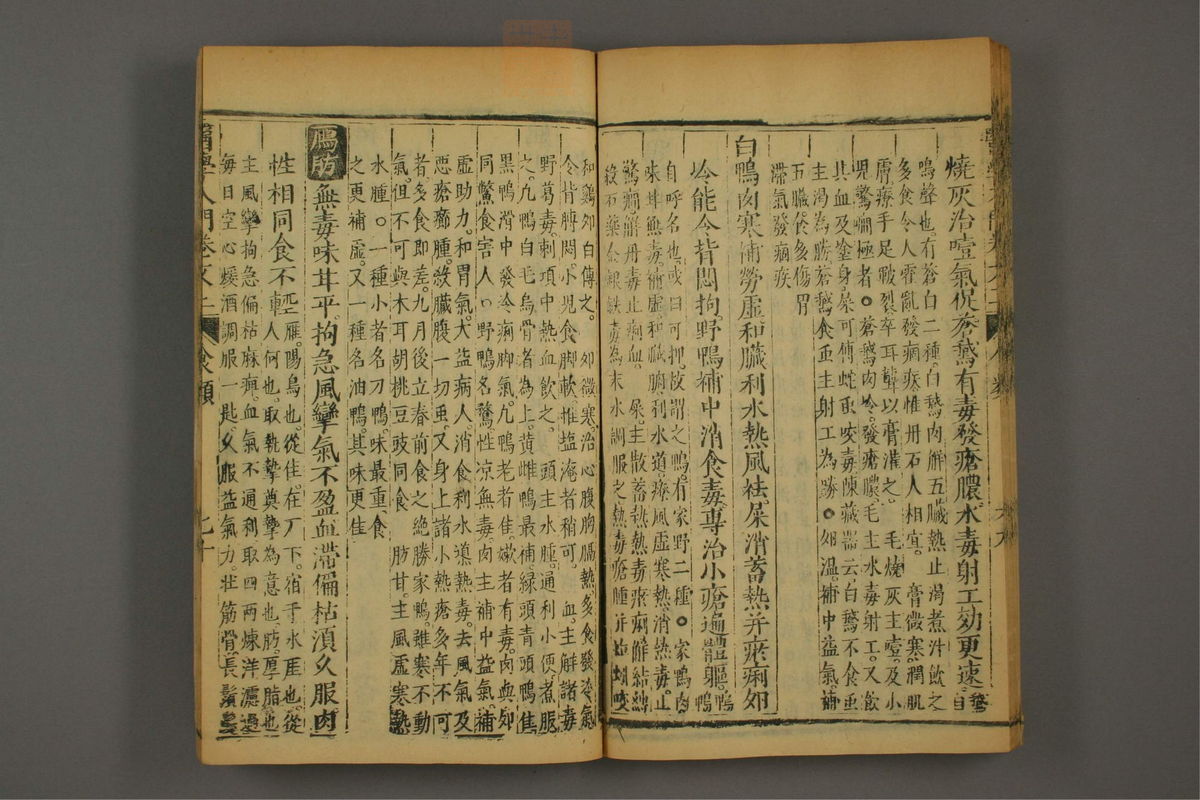 燒灰治噎氣促蒼鵝有毒發瘡膿水毒射工効更速鵝自
鳴聲也有蒼白二種白鵝肉解五臟熱止渴煮汁飲之
多食令人霍亂發痼疾惟丹石人相宜膏微寒潤肌
膚療手足皸裂卒耳聾以膏灌之毛燒灰主噎及小
児驚癇極者○蒼鵝肉冷發瘡膿毛主水毒射工又飲
其血及塗身屎可傅蛇虫咬毒陳藏器云白鵝不食虫
主渴為勝蒼鵝食虫主射工為勝○卵温補中益氣補
五臟食多傷胃
滯氣發痼疾
白鴨肉寒補勞虚和臟利水熱風祛屎消蓄熱并瘀痢卵
冷能令背悶拘野鴨補中消食毒專治小瘡遍體軀鴨鴨
自呼名也或曰可押故謂之鴨有家野二種○家鴨肉
味甘無毒補虚和臟腑利水道療風虚寒熱消熱毒止
驚癇解丹毒止痢血屎主散蓄熱熱毒瘀痢解結縛
殺石藥金銀鉄毒為末水調服之熱毒瘡腫并蚯蚓咬
和鷄卵白傅之卵微寒治心腹胸膈熱多食發冷氣
令背膊悶小児食脚軟惟塩淹者稍可血主解諸毒
野葛毒刺項中熱血飲之頭主水腫通利小便煮服
之凢鴨白毛烏骨者為上黄雌鴨最補緑頭青頭鴨佳
黒鴨滑中發冷痢脚氣凢鴨老者佳嫩者有毒肉與卵
同鱉食害人○野鴨名鶩性凉無毒肉主補中益氣補
虚助力和胃氣大益病人消食利水道熱毒去風氣及
惡瘡癤腫殺臟腹一切虫又身上諸小熱瘡多年不可
者多食即差九月後立春前食之絶勝家鴨雖寒不動
氣但不可與木耳胡桃豆豉同食肪甘主風虚寒熱
水腫○一種小者名刀鴨味最重食
之更補虚又一種名油鴨其味更佳
鴈肪無毒味甘平拘急風攣氣不盈血滯偏枯湏久服肉
性相同食不輕雁陽鳥也從隹在厂下宿于水厓也從
人何也取執摯奠摯為意也肪厚脂也
主風攣拘急偏枯麻痺血氣不通利取四兩煉洋濾過
每日空心煖酒調服一匙久服益氣力壮筋骨長鬚眉
醫學入門卷之二
食類
九十